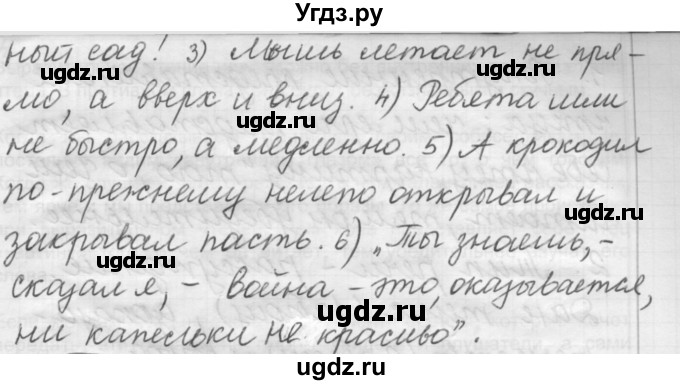 Угдз.ру
ный сад! 3) Мышь летает не пря-
мо, а вверх и вниз. 4) Ребята шли
не быстро, а медленно. 5) А крокодил
по-прежнему нелепо открывал и
закрывал пасть. 6) „Ты знаешь, -
сказал я, - война - это, оказывается,
ни капельки не красиво".
ugdz.ru ugdz.ru
ugdz.ru ugdz.ru
ugdz.ru ugdz.ru
ugdz.ru ugdz.ru
ugdz.ru